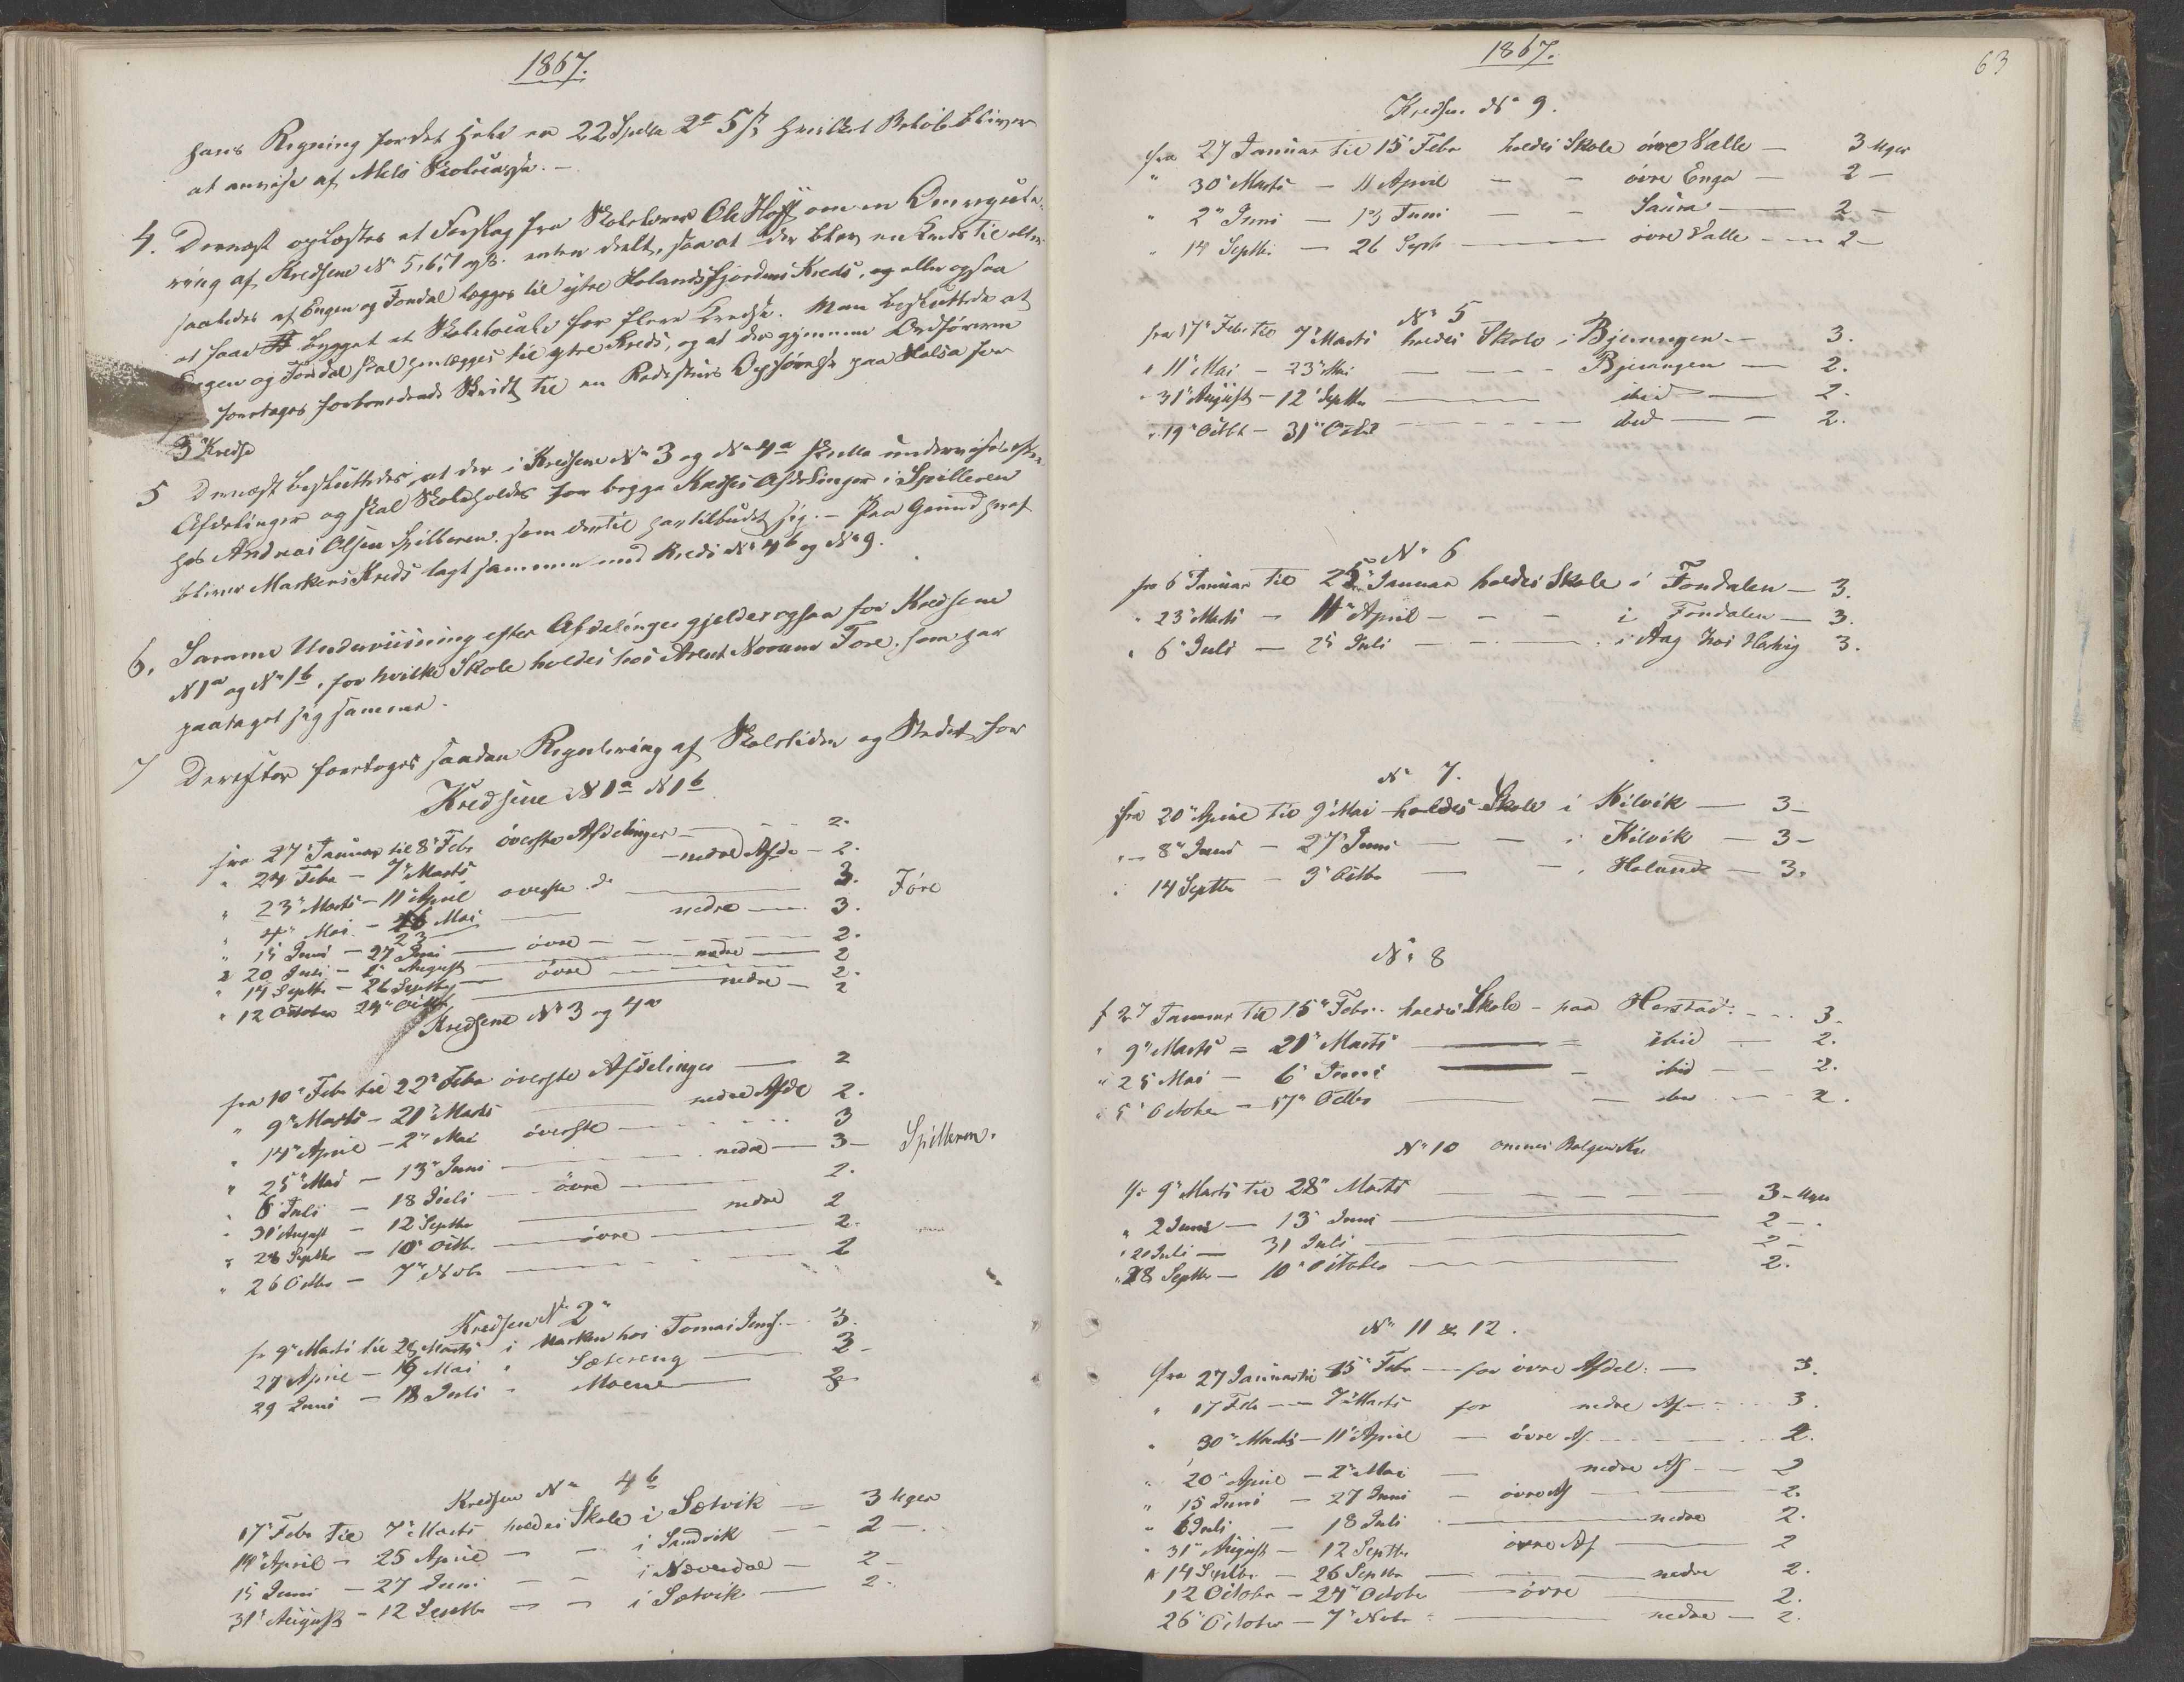 1867.
hans Regning for det Hele er 22 Spdlr 2 # 5 ß hvilket Beløb bliver
at anvise af Melø Skolecasse. -
4. Dernæst oplæstes et Forslag fra Skolelærer Ole Hoff om en Omregule-
ring af Kredsene No 5, 6, 7 og 8. enten deelt, saa at der blev en Kreds til eller
saaledes at Engen og Fondal lægges til ytre Holandsfjordens Kreds, og eller ogsaa
at faae bygget et Skolelocale for flere Kredse. Man besluttede at
Engen og Fondal skal henlægges til ytre Kreds, og at der gjennem Ordføreren
foretages forberedende Skridt til en Opførelse paa Halsa for
3 Kredse
5 Dernæst besluttedes, at der i Kredsene No 3 og No 4a skulle undervises efter
Afdelinger og skal Skole holdes for begge Kredses Afdelinger i Spilleren
hos Andreas Olsen Spilleren. som dertil har tilbudet sig. - Paa Grund heraf
bliver Markens Kreds lagt sammen med Kreds No 4b og No 9.
6. Samme Underviisning efter Afdelinger gjelder ogsaa for Kredsene
N 1a og No 1b, for hvilke Skole holdes hos Arent Fore, som har
paataget sig samme.
7 Derefter foretoges saadan Regulering af Skoletiden og Stedet for
Kredsene N 1a N 1b
fra 27 Januar til 8 Febr överste Afdelinger - 2.
" 24 Febr - 7 Marts - nedre Afde - 2.
" 23 Marts - 11 April overste do 3. Före
" 4 Mai - 23 Mai nedre - 3.
" 15 Juni - 27 Juni - övre - 2.
" 20 Juli - 1 August - nedre - 2
" 14 Septbr - 26 Septbr - övre - 2.
" 12 October 24 Octbr nedre - 2
Kredsene No 3 og 4a
fra 10 Febr til 22 Febr överste Afdelinger - 2
" 9 Marts - 21 Marts nedre Afde 2.
" 14 April - 2 Mai överste - 3
" 25 Mai - 13 Juni - nedre - 3 - Spilleren.
" 6 Juli - 18 Juli - övre - 2.
" 31 August - 12 Septbr - nedre 2
" 28 Septbr - 10 Octb. - övre - 2.
" 26 Octbr - 7 Novb - 2
Kredsen No 2
fr 9 Marts til 28 Marts i Marken hos Tomas Jens. - 3.
27 April - 16 Mai " Sætereng - 3 -
29 Juni - 18 Juli " Moene - 3
Kredsen No 4b
17 Febr til 7 Marts holdes Skole i Sætvik - 3 Uger
14 April - 25 April - - i Sandvik - 2 -
15 Juni - 27 Juni - - i Neverdal - 2 -
31 August - 12 Septbr - - i Sætvik - 2 -
1867.
63
Kredsen No 9.
fra 27 Januar til 15 Febr holdes Skole övre Valle - 3 Uger
" 30 Marts - 11 April - - övre Enga - 2 -
" 2 Juni - 13 Juni - - Saura - 2 -
" 14 Septbr. - 26 Septb - övre Valle - 2 -
No 5
fra 17 Febr til 7 Marts holdes Skole i Bjerangen - 3.
" 11 Mai - 23 Mai - - - Bjerangen - 2.
" 31 August - 12 Septbr - ibid - 2.
" 19 Octbr - 31 Octbr - ibid - 2.
No 6
fr 6 Januar til 25 Januar holdes Skole i Fondalen - 3.
" 23 Marts - 11 April - - - i Fondalen - 3.
" 6 Juli - 25 Juli - - i Aag hos 3.
No 7.
fra 20 April til 9 Mai holdes Skole i Kilvik - 3 -
" 8 Juni - 27 Juni - - i Kilvik - 3 -
" 14 Septbr - 3 Octbr - - i Holand - 3.
No 8
f 27 Januar til 15 Febr. holdes Skole - paa Harstad: - 3 -
" 9 Marts = 21 Marts = ibid - 2.
" 25 Mai - 6 Juni - ibid - 2.
" 5 October - 17 Octbr - - ibid - 2.
No 10
fr 9 Marts til 28 Marts - 3 - Uger
" 2 Juni - 13 Juni - 2 -
" 20 Juli - 31 Juli - 2 -
" 28 Septbr - 10 October - 2.
No 11 & 12.
fra 27 Januar til 15 Febr - for övre Afdel: - 3.
" 17 Febr - 7 Marts for nedre Af - 3.
" 30 Marts - 11 April - övre Af - 2.
" 20 April - 2 Mai - nedre Af - 2
" 15 Juni - 27 Juni - övre Af - 2.
" 6 Juli - 18 Juli - nedre 2.
" 31 August - 12 Septbr övre Af - 2
" 14 Septbr. - 26 Septbr - nedre 2.
12 October - 24 October - övre - 2.
26 October - 7 Novbr - nedre - 2.